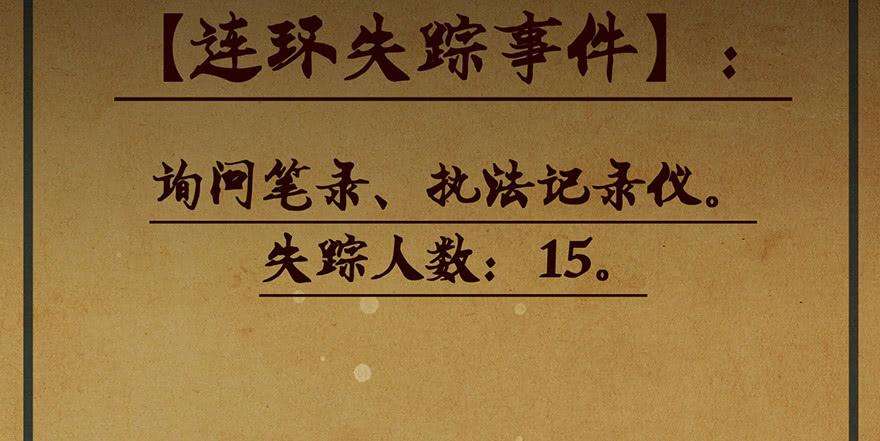 【连环失踪事件】：
询问笔录、执法记录仪。
失踪人数：15。